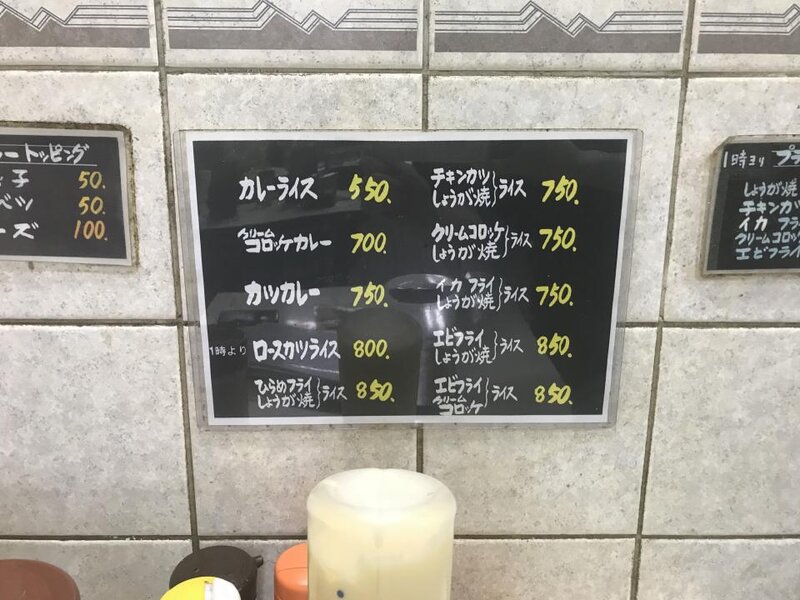 ートッピング
子 50.
ベツ 50.
ーズ 100.
カレーライス 550.
クリーム
コロッケカレー 700.
カツカレー 750.
1時より ロースカツライス 800.
ひらめフライ
しょうが焼}ライス 850.
チキンカツ
しょうが焼}ライス 750.
クリームコロッケ
しょうが焼}ライス 750.
イカフライ
しょうが焼}ライス 750.
エビフライ
しょうが焼}ライス 850.
エビフライ
クリーム
コロッケ}ライス 850.
1時ヨリ プラ
しょうが焼
チキンカツ
イカ フラ
クリームコロッケ
エビフライ